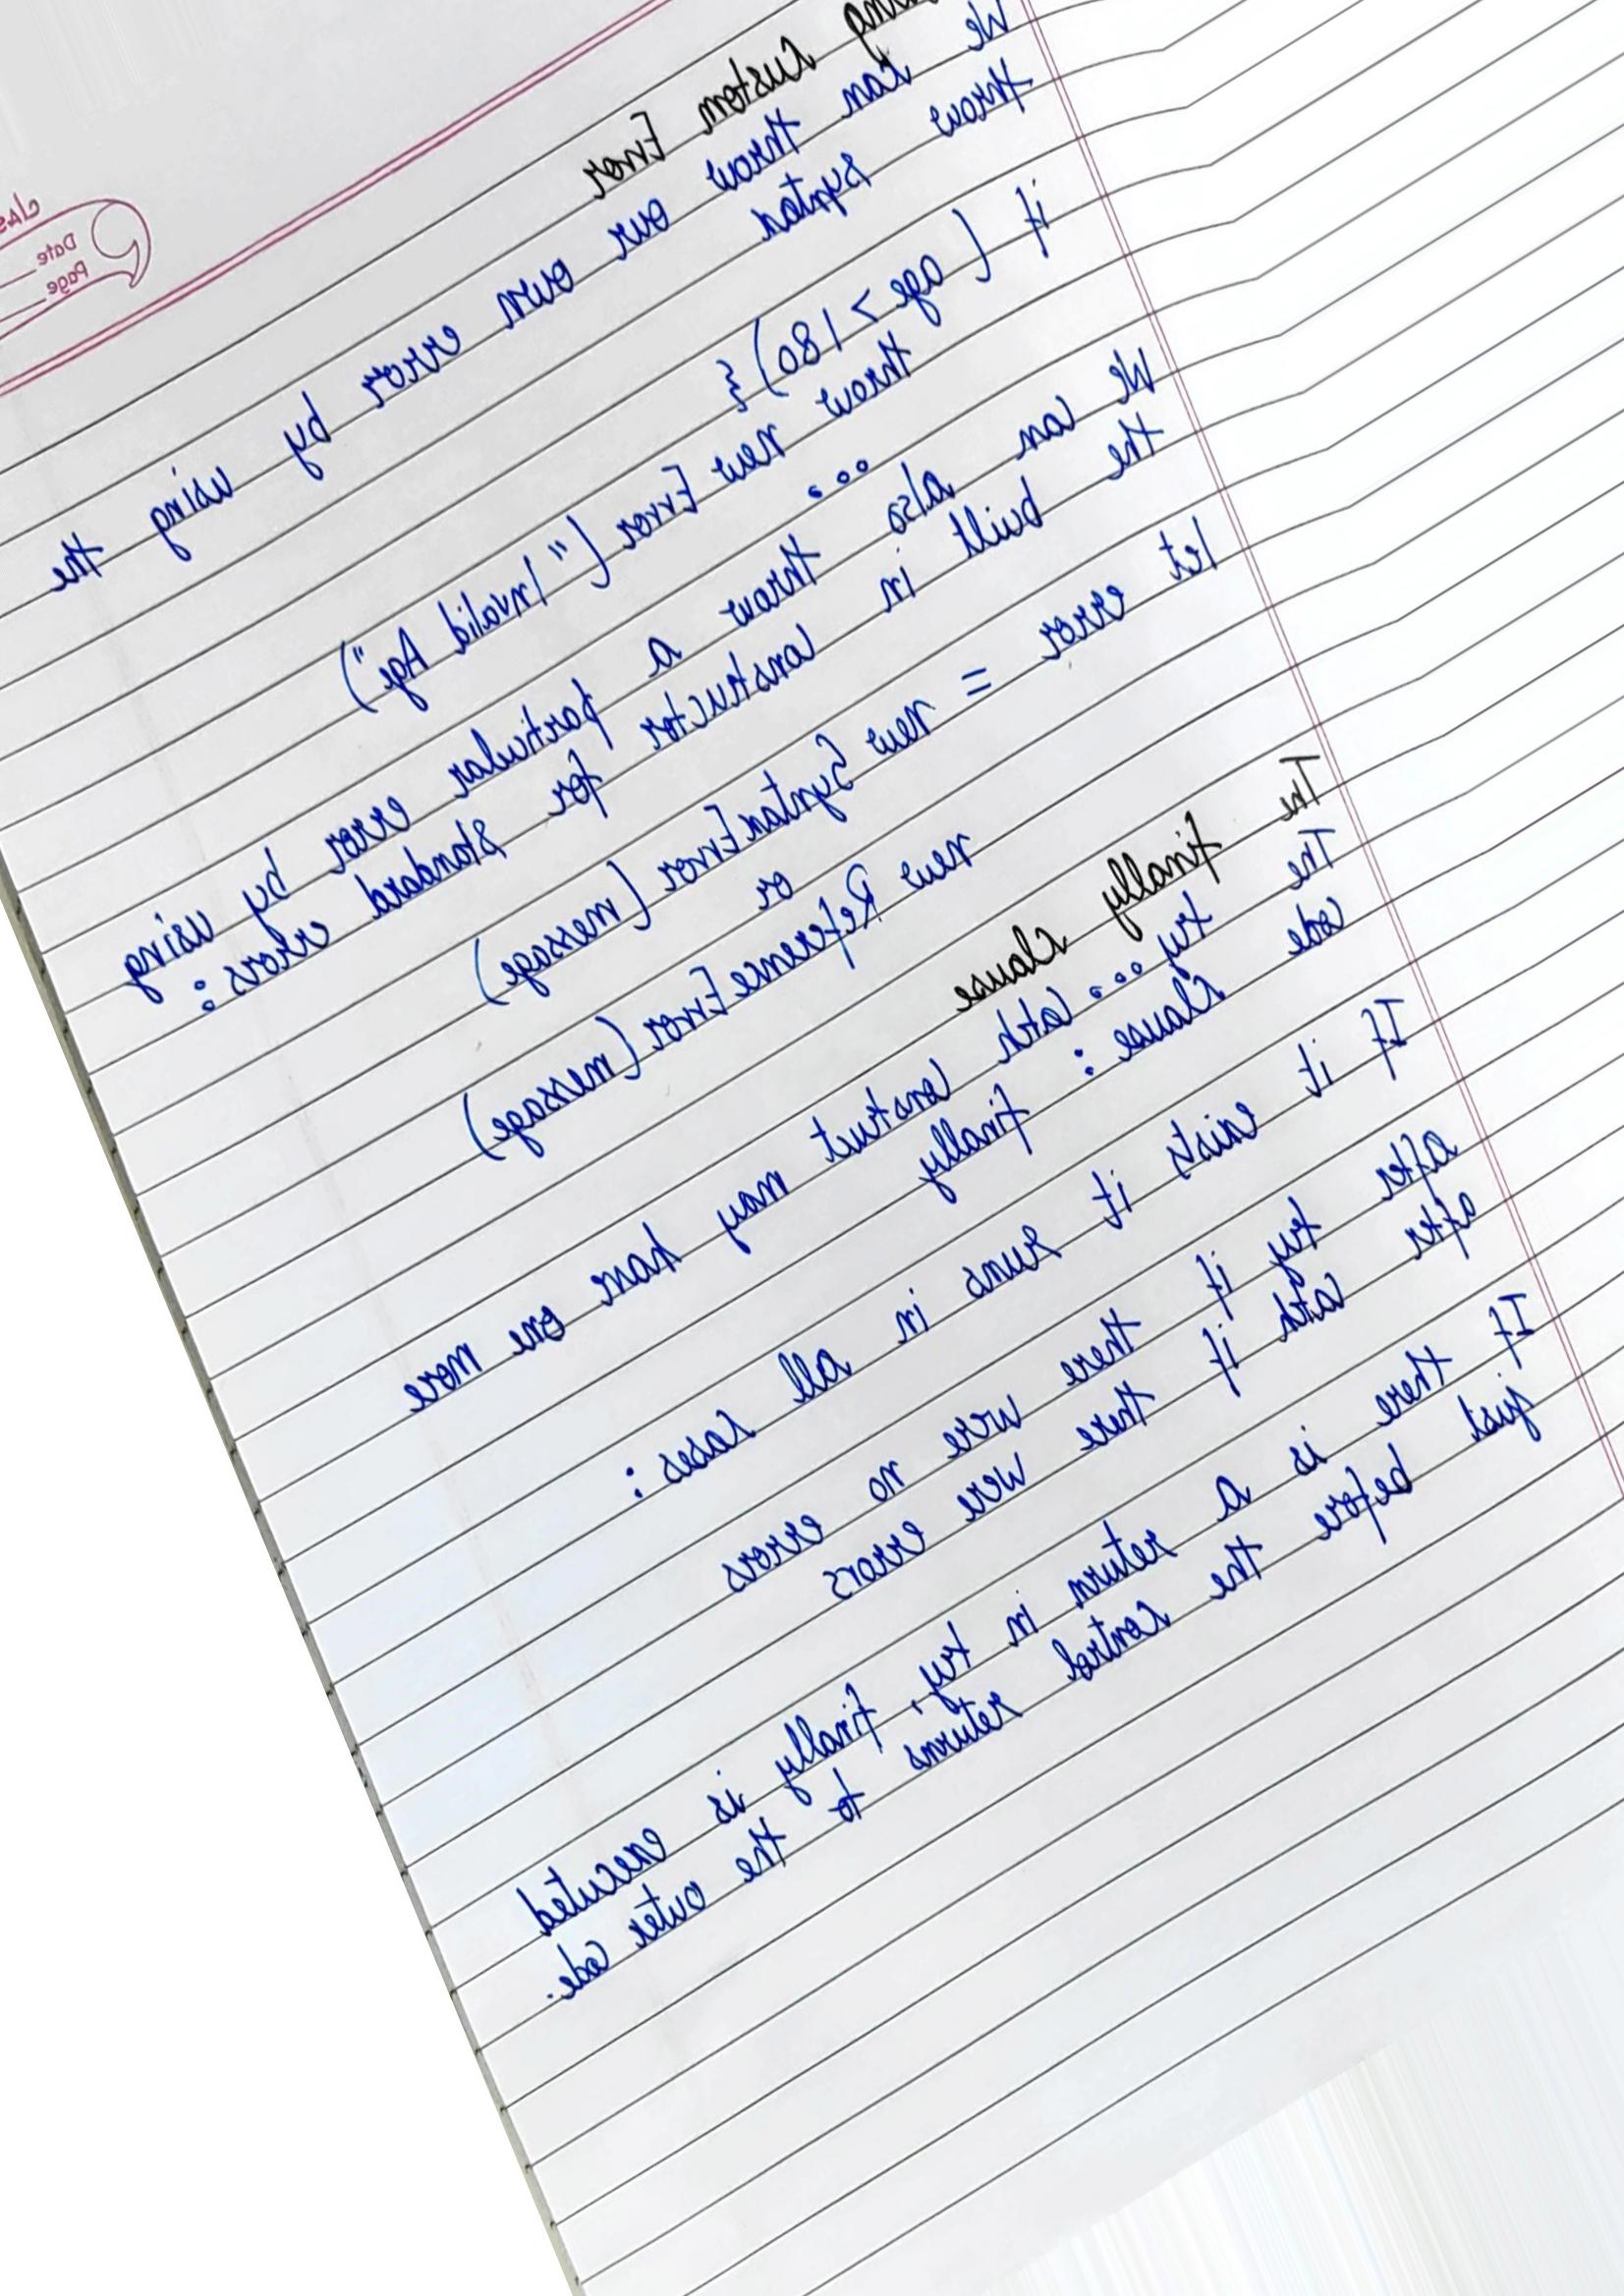 Custom Error
We can throw our own error by using the
throw syntax
if (age > 180) {
throw new Error ("Invalid Age")
...
We can also throw a particular error by using
the built in constructor for standard errors:
let error = new SyntaxError (message)
or
new ReferenceError (message)
The finally clause
The try...catch construct may have one more
code clause: finally
If it exists it runs in all cases:
after try if there were no errors
after catch if there were errors
If there is a return in try, finally is executed
just before the control returns to the outer code.
Date
Page